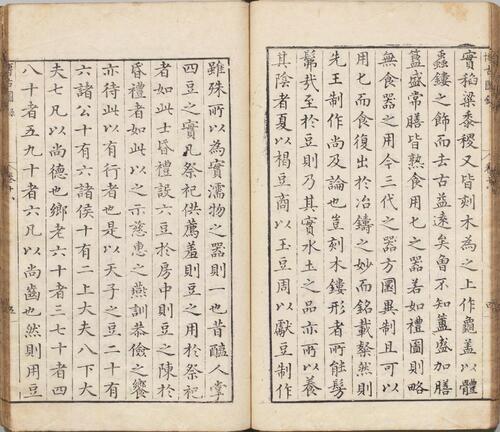 實稻粱黍稷又皆刻木為之上作龜蓋以體
蟲鏤之飾而去古益遠矣曾不知簠盛加膳
簋盛常膳皆熟食用匕之器若如禮圖則略
無食器之用今三代之器方圓異制且可以
用匕而食復出於冶鑄之妙而銘載粲然則
先王制作尚及論也豈刻木鏤形者所能髣
髴哉至於豆則乃其實水土之品亦所以養
其陰者夏以楬豆商以玉豆周以獻豆制作
雖殊所以為實濡物之器則一也昔醢人掌
四豆之實凡祭祀供薦羞則豆之用於祭祀
者如此士昏禮設六豆於房中則豆之陳於
昏禮者如此以之示慈惠之燕訓恭儉之饗
亦待此以有行者也是以天子之豆二十有
六諸公十有六諸侯十有二上大夫八下大
夫七凡以尚德也鄉老六十者三七十者四
八十者五九十者六凡以尚齒也然則用豆